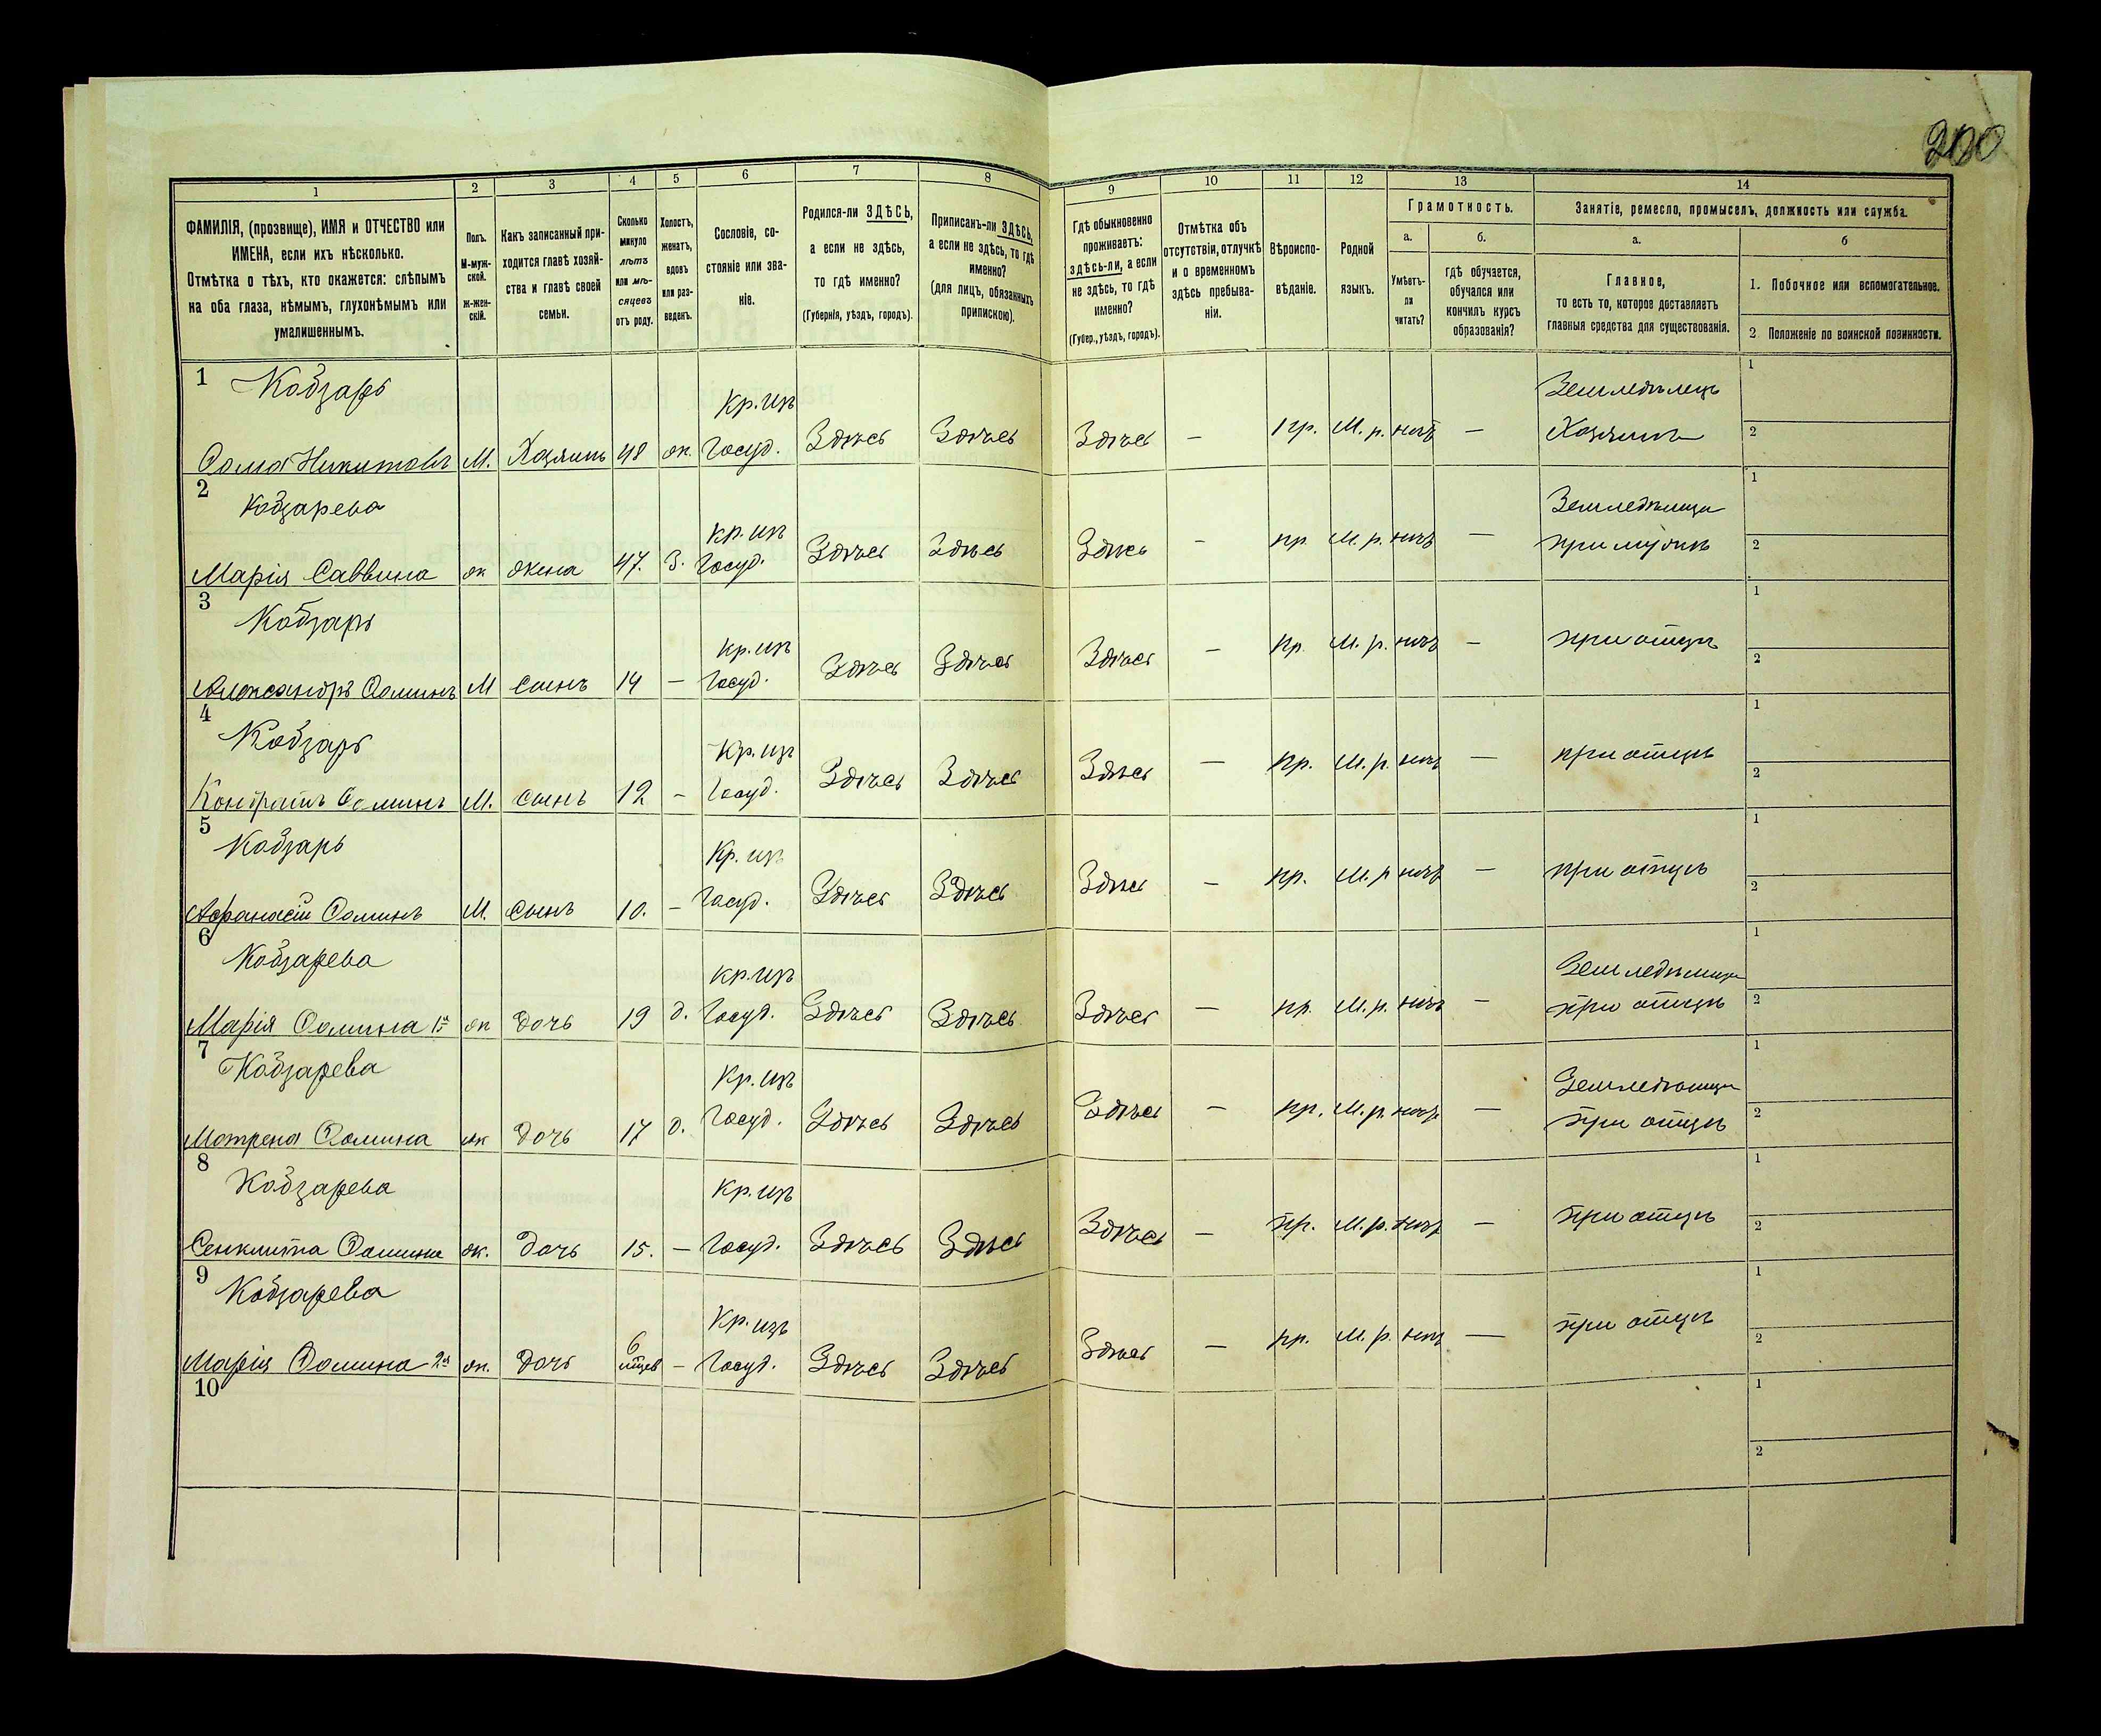 200
1
2
3
4
5
6
7
8
9
10
11
12
13
14
ФАМИЛІЯ, (прозвище), ИМЯ и ОТЧЕСТВО или
ИМЕНА, если ихъ нѣсколько.
Отмѣтка о тѣхъ, кто окажется: слѣпымъ
на оба глаза, нѣмымъ, глухонѣмымъ или
умалишеннымъ.
Полъ.
М-муж-
ской.
ж-жен-
скій.
Какъ записанный при-
ходится главѣ хозяй-
ства и главѣ своей
семьи.
Сколько
минуло
лѣтъ
или мѣ-
сяцевъ
отъ роду.
Холостъ,
женатъ,
вдовъ
или раз-
веденъ.
Сословіе, со-
стояніе или зва-
ніе.
Родился-ли ЗДѢСЬ,
а если не здѣсь,
то гдѣ именно?
(Губернія, уѣздъ, городъ).
Приписанъ-ли ЗДѢСЬ,
а если не здѣсь, то гдѣ
именно?
(для лицъ, обязанныхъ
припискою).
Гдѣ обыкновенно
проживаетъ:
здѣсь-ли, а если
не здѣсь, то гдѣ
именно?
(Губер., уѣздъ, городъ).
Отмѣтка объ
отсутствіи, отлучкѣ
и о временномъ
здѣсь пребыва-
ніи.
Вѣроиспо-
вѣданіе.
Родной
языкъ.
Грамотность.
а.
Умѣетъ-
ли
читать?
б.
гдѣ обучается,
обучался или
кончилъ курсъ
образованія?
Занятіе, ремесло, промыселъ, должность или служба.
а.
Главное,
то есть то, которое доставляетъ
главныя средства для существованія.
б
1. Побочное или вспомогательное.
2 Положеніе по воинской повинности.
1 Кобзарь Кр. изъ Земледѣлецъ 1
Ѳома Никитовъ М. Хозяинъ 48 ж. Госуд. Здѣсь Здѣсь Здѣсь – пр. М. р. нѣтъ – Хозяинъ 2
2 Кобзарева кр. изъ 1
Марія Саввина ж жена 47. З. Госуд. Здѣсь Здѣсь Здѣсь – пр М. р. нѣтъ – при мужѣ 2
3 Кобзарь кр. изъ 1
Александръ Ѳоминъ М сынъ 14 – Госуд. Здѣсь Здѣсь Здѣсь – пр. М. р. нѣтъ – при отцѣ 2
4 Кобзарь Кр. изъ 1
Кондратъ Ѳоминъ М. сынъ 12 – Госуд. Здѣсь Здѣсь Здѣсь – пр. М. р. нѣтъ – при отцѣ 2
5 Кобзарь Кр. изъ 1
Афанасій Ѳоминъ М. Сынъ 10. – Госуд. Здѣсь Здѣсь Здѣсь – пр. М. р нѣтъ – при отцѣ 2
6 Кобзарева кр. изъ 1
Марія Ѳомина 1я ж дочь 19 д. Госуд. Здѣсь Здѣсь Здѣсь – пр. М. р. нѣтъ – при отцѣ 2
7 Кобзарева Кр. изъ 1
Матрена Ѳомина ж Дочь 17 д. Госуд. Здѣсь Здѣсь Здѣсь – пр. М. р. нѣтъ – при отцѣ 2
8 Кобзарева Кр. изъ 1
Сенклита Ѳомина ж. Дочь 15. – Госуд. Здѣсь Здѣсь Здѣсь – пр. М. р. нѣтъ – при отцѣ 2
9 Кобзарева 6 Кр. изъ 1
Марія Ѳомина 2я ж. Дочь – Госуд. Здѣсь Здѣсь Здѣсь – пр. М. р. нѣтъ – при отцѣ 2
10 1
2